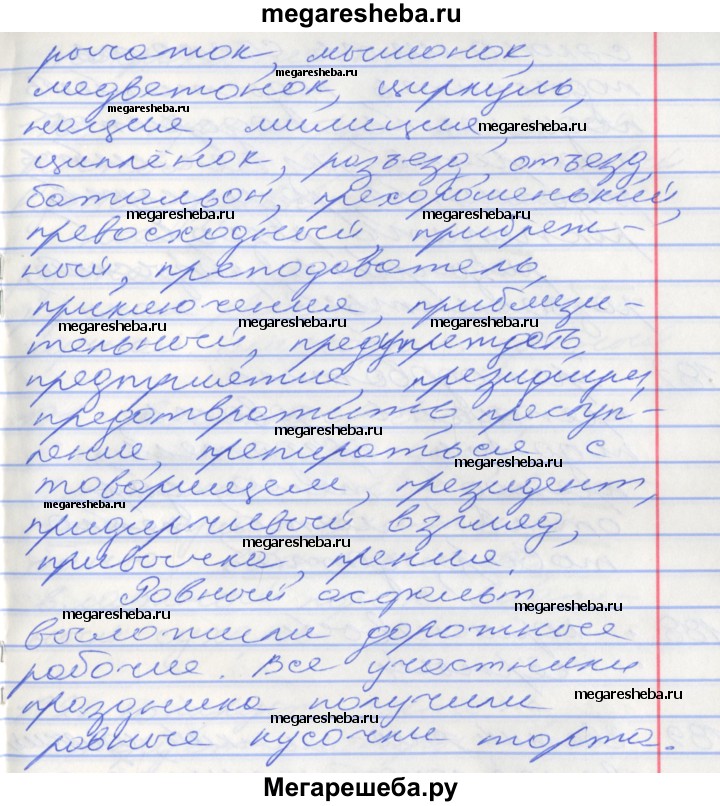 megaresheba.ru
рычажок, мышонок,
megaresheba.ru
медвежонок, циркуль,
megaresheba.ru
нация, милиция,
megaresheba.ru
цыплёнок, разъезд, отъезд,
батальон, прехорошенький,
megaresheba.ru megaresheba.ru
превосходный, прибреж-
ный, преподаватель,
приключения, приблизи-
megaresheba.ru megaresheba.ru megaresheba.ru
тельный, предупреждать,
предприятие, президиум,
предотвратить, преступ-
megaresheba.ru
ление, препираться с
megaresheba.ru
товарищем, президент,
megaresheba.ru
придирчивый взгляд,
megaresheba.ru
привычка, прения.
Ровный асфальт
megaresheba.ru megaresheba.ru
выложили дорожные
рабочие. Все участники
megaresheba.ru
праздника получили
megaresheba.ru
равные кусочки торта.
megaresheba.ru
Мегарешеба.ру